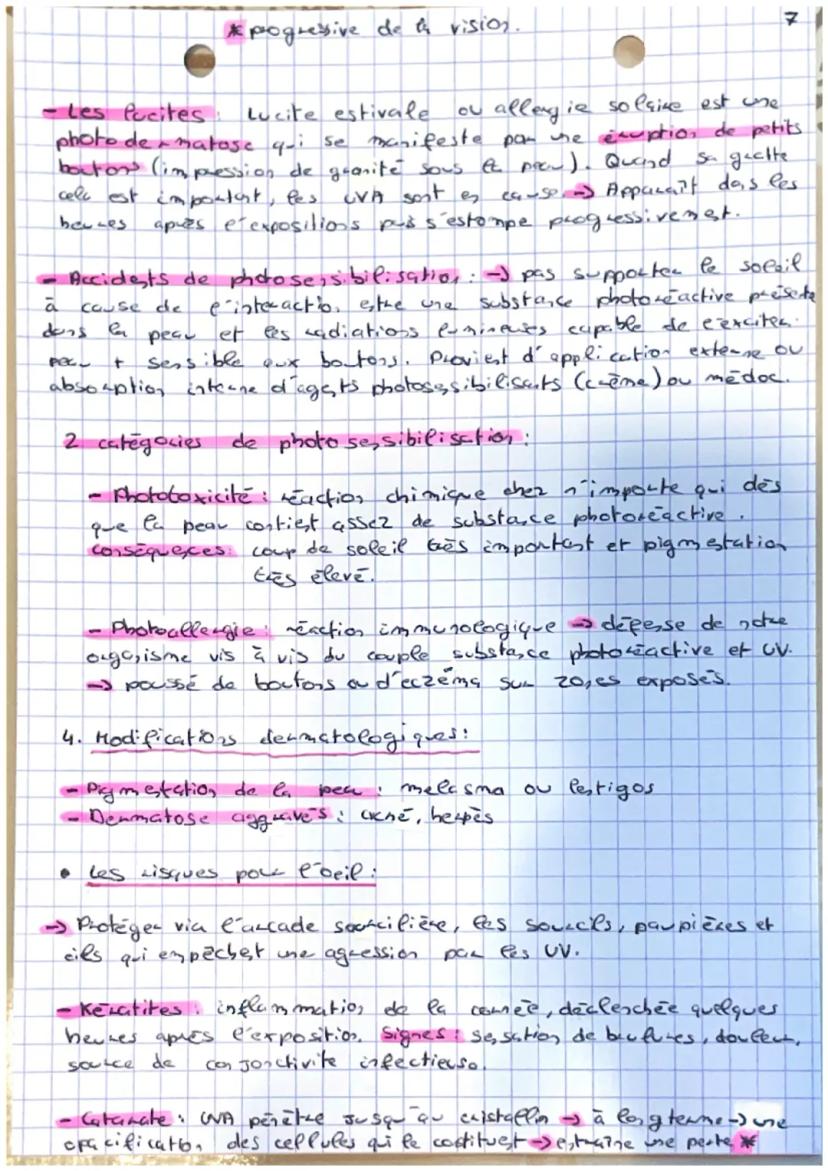 7
* progressive de la vision.
- Les lucites : Lucite estivale ou allergie solaire est une
photodermatose qui se manifeste par une éruption de petits
boutons (impression de granité sous la peau). Quand sa gratte
cela est important, les UVA sont en cause → Apparaît dans les
heures après l'expositions puis s'estompe progressivement.
- Accidents de photosensibilisation : → pas supporter le soleil
à cause de l'interaction entre une substance photoréactive présente
dans la peau et les radiations lumineuses capable de l'exciter.
peau + sensible aux boutons. Provient d'application externe ou
absorption interne d'agents photosensibilisants (crème) ou médoc.
2 catégories de photosensibilisation :
- Phototoxicité : réaction chimique chez n'importe qui dès
que la peau contient assez de substance photoréactive.
conséquences : coup de soleil très important et pigmentation
très élevé.
- Photoallergie : réaction immunologique → défense de notre
organisme vis à vis du couple substance photoréactive et UV.
→ poussé de boutons ou d'eczéma sur zones exposés.
4. Modifications dermatologiques :
- Pigmentation de la peau : melasma ou lentigos
- Dermatose aggravés : acné, herpès
• Les risques pour l'oeil :
→ Protéger via l'arcade sourcilière, les sourcils, paupières et
cils qui empêchent une agression par les UV.
- Kératites : inflammation de la cornée, déclenchée quelques
heures après l'exposition. Signes : sensation de brulures, douleur,
source de conjonctivite infectieuse.
- Cataracte : UVA pénètre jusqu'au cristallin → à long terme → une
opacification des cellules qui le constituent → entraîne une perte *